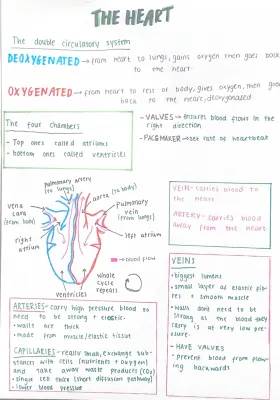 THE HEART
The double circulatory system
DEOXYGENATED → from heart to lungs, gains oxygen then goes back
to the heart
OXYGENATED → from heart to rest of body, gives oxygen, then goes
back to the heart, deoxygenated
The four chambers
- Top ones called atriums
- bottom ones called ventricles
- VALVES → Ensures blood flows in the
right direction
- PACEMAKER → set rate of heartbeat
pulmonary artery
(to lungs)
aorta (to body)
vena
cava
(from body)
pulmonary
vein
(from lungs)
right
atrium
left atrium
→ blood flow
whole
cycle
repeats
ventricles
VEIN - carries blood to
the heart
ARTERY - carries blood
away from the heart
ARTERIES - carry high pressure blood so
need to be strong + elastic.
• walls are thick
• made from muscle/elastic tissue
CAPILLARIES - really small, exchange sub-
stances with cells (nutrients + oxygen)
and take away waste products (CO2)
• single cell thick (short diffusion pathway)
• lower blood pressure
VEINS
• biggest lumens
• small layer of elastic fib-
res + smooth muscle
• walls dont need to be
strong as the blood they
carry is at very low pre-
ssure.
- HAVE VALVES
• prevent blood from flow-
ing backwards